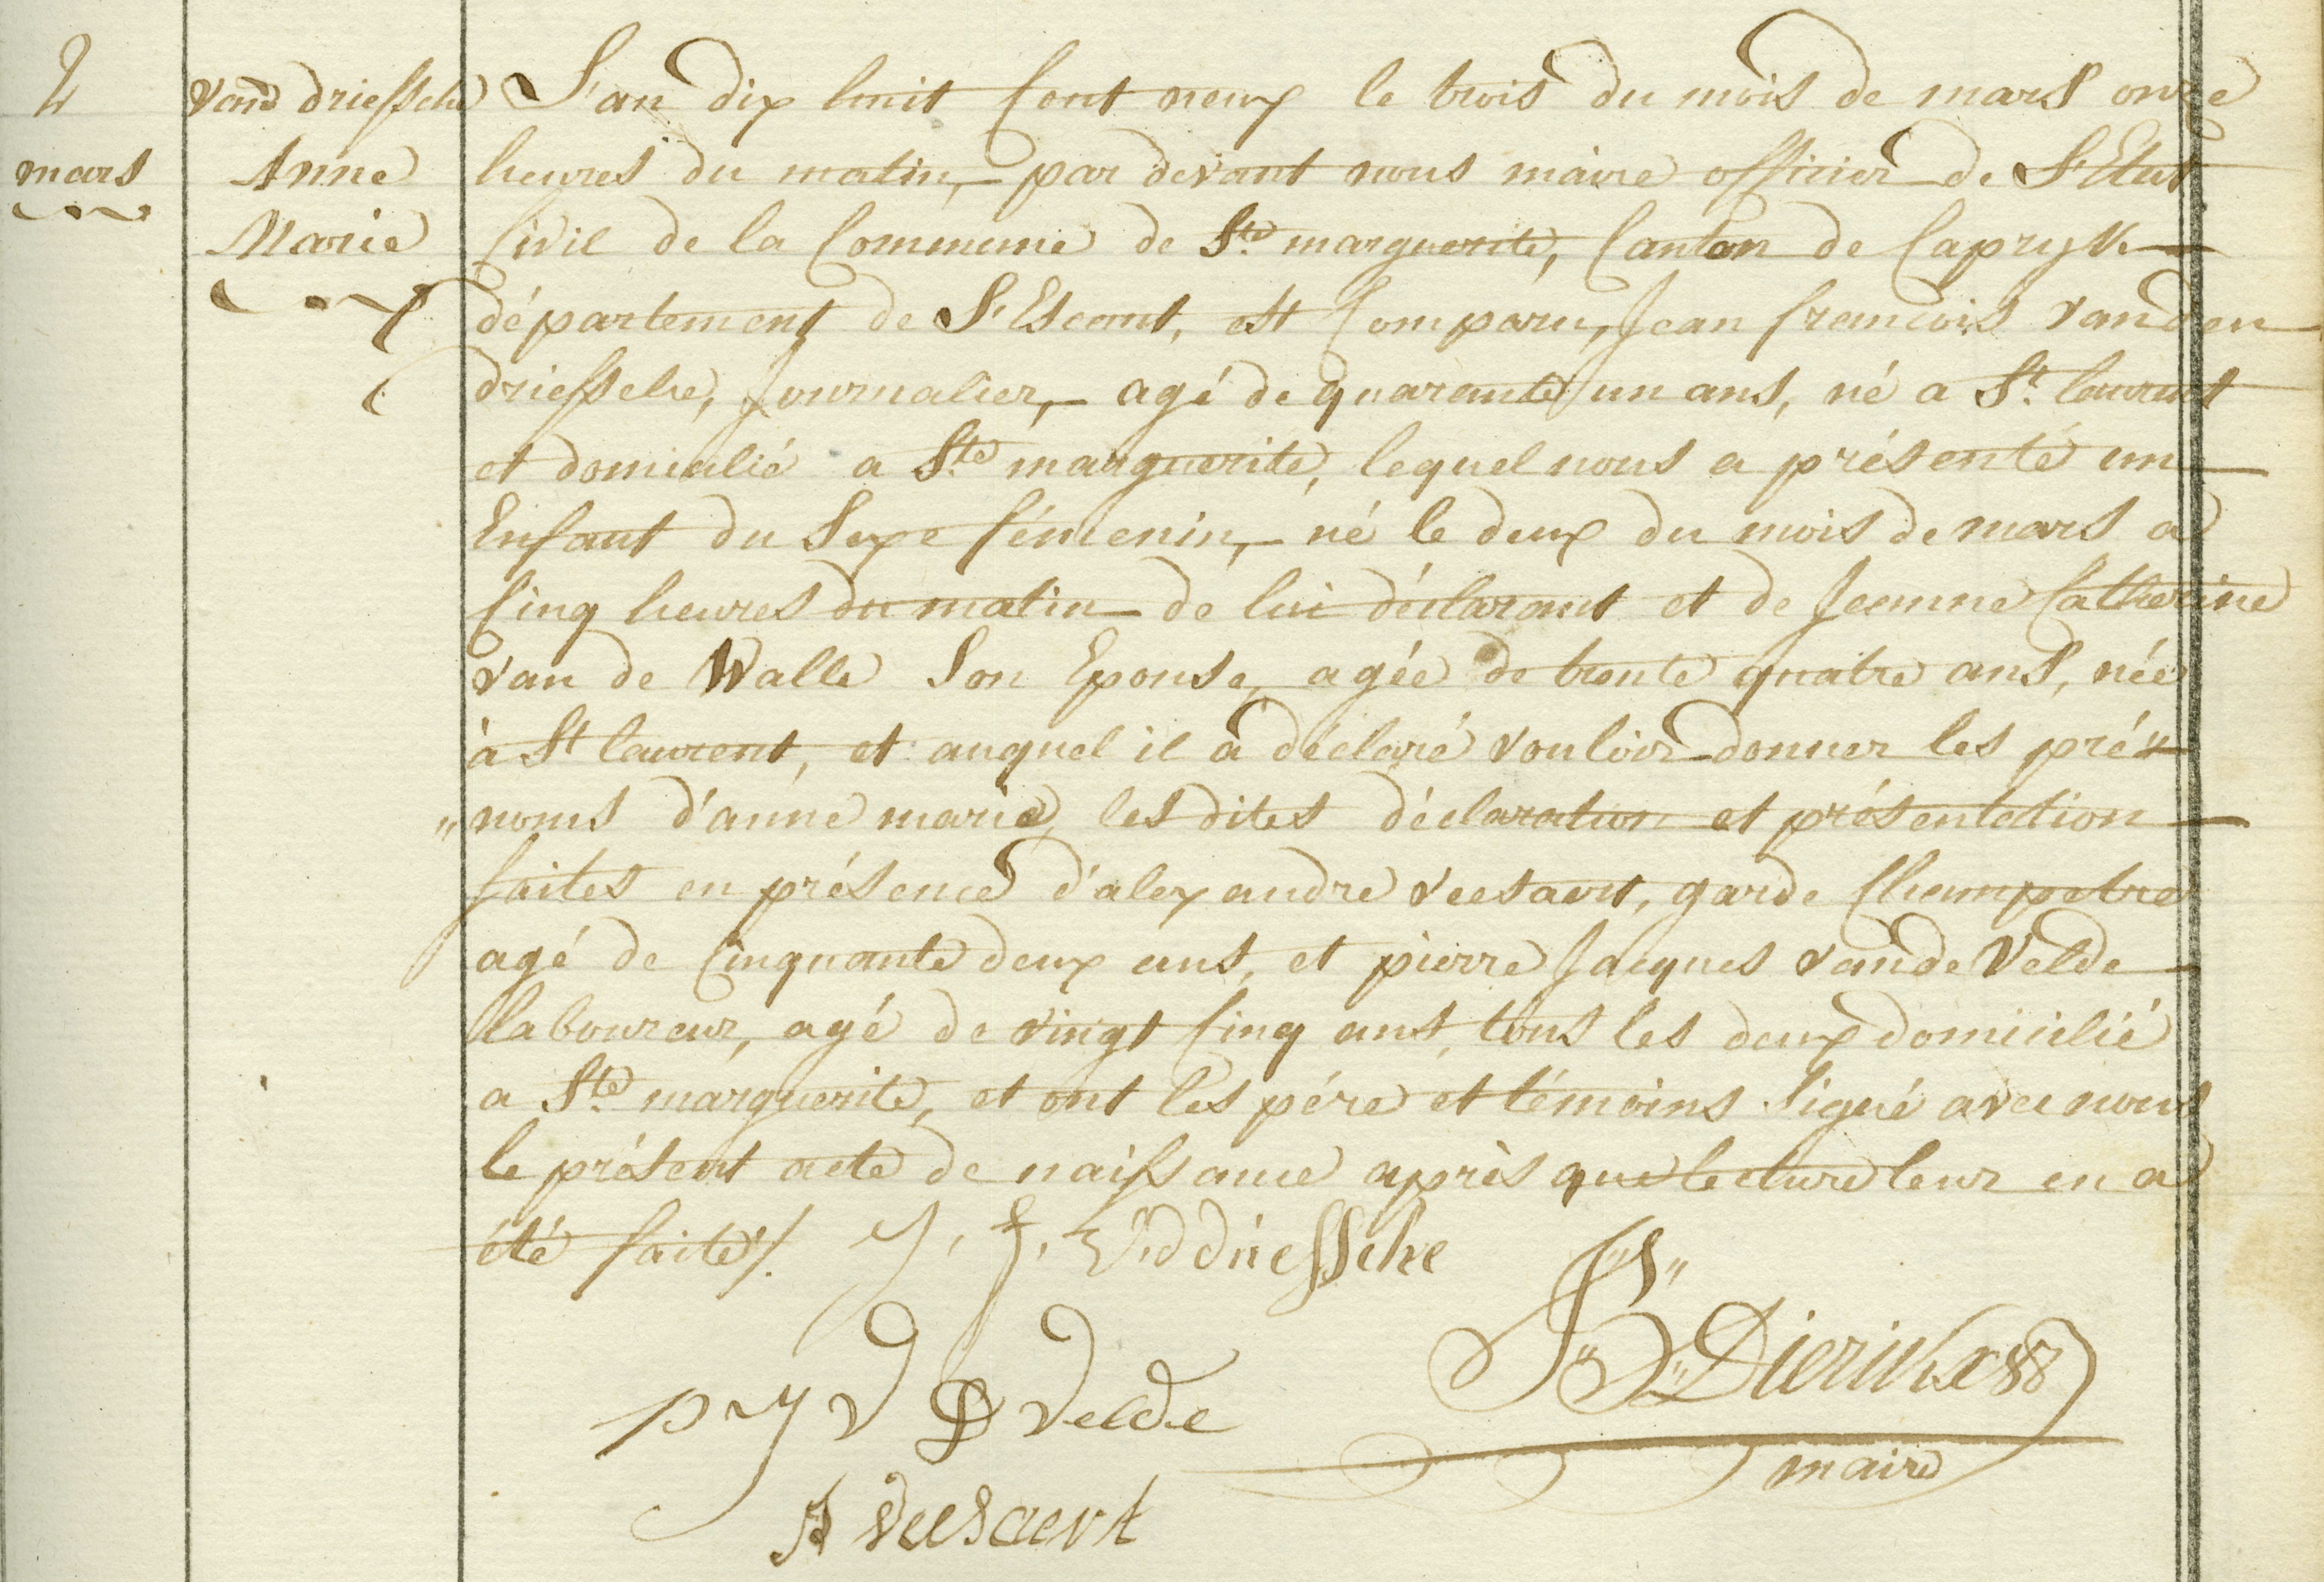 2
mars
vand driessche
Anne
Marie
L'an dix huit Cent neuf le trois du mois de mars onze
heures du matin, par devant nous maire officier de L'Etat
Civil de la Commune de Ste marguerite, Canton de Capryk
département de L'Escaut, est Comparu, Jean francois vanden
driessche, Journalier, agé de quarante un ans, né a St laurent
et domicilié a Ste marguerite, lequel nous a présenté un
Enfant du Sexe fémenin, né le deux du mois de mars a
Cinq heures du matin de lui déclarant et de Jeanne Catherine
van de Walle Son Epouse, agée de trente quatre ans, née
à St laurent, et auquel il a déclaré vouloir donner les pré„
„noms d'anne marie, les dites déclaration et présentation
faites en présence d'alexandre veesaert, garde Champetre
agé de Cinquante deux ans, et pierre Jacques vande Velde
laboureur, agé de vingt Cinq ans, tous les deux domicilié
a Ste marguerite, et ont les pére et témoins Signé avec nous
le présent acte de naissance après que lecture leur en a
été faite ./.
J. f. v.d driessche
p J v D velde
Dierickx
maire
A veesaert